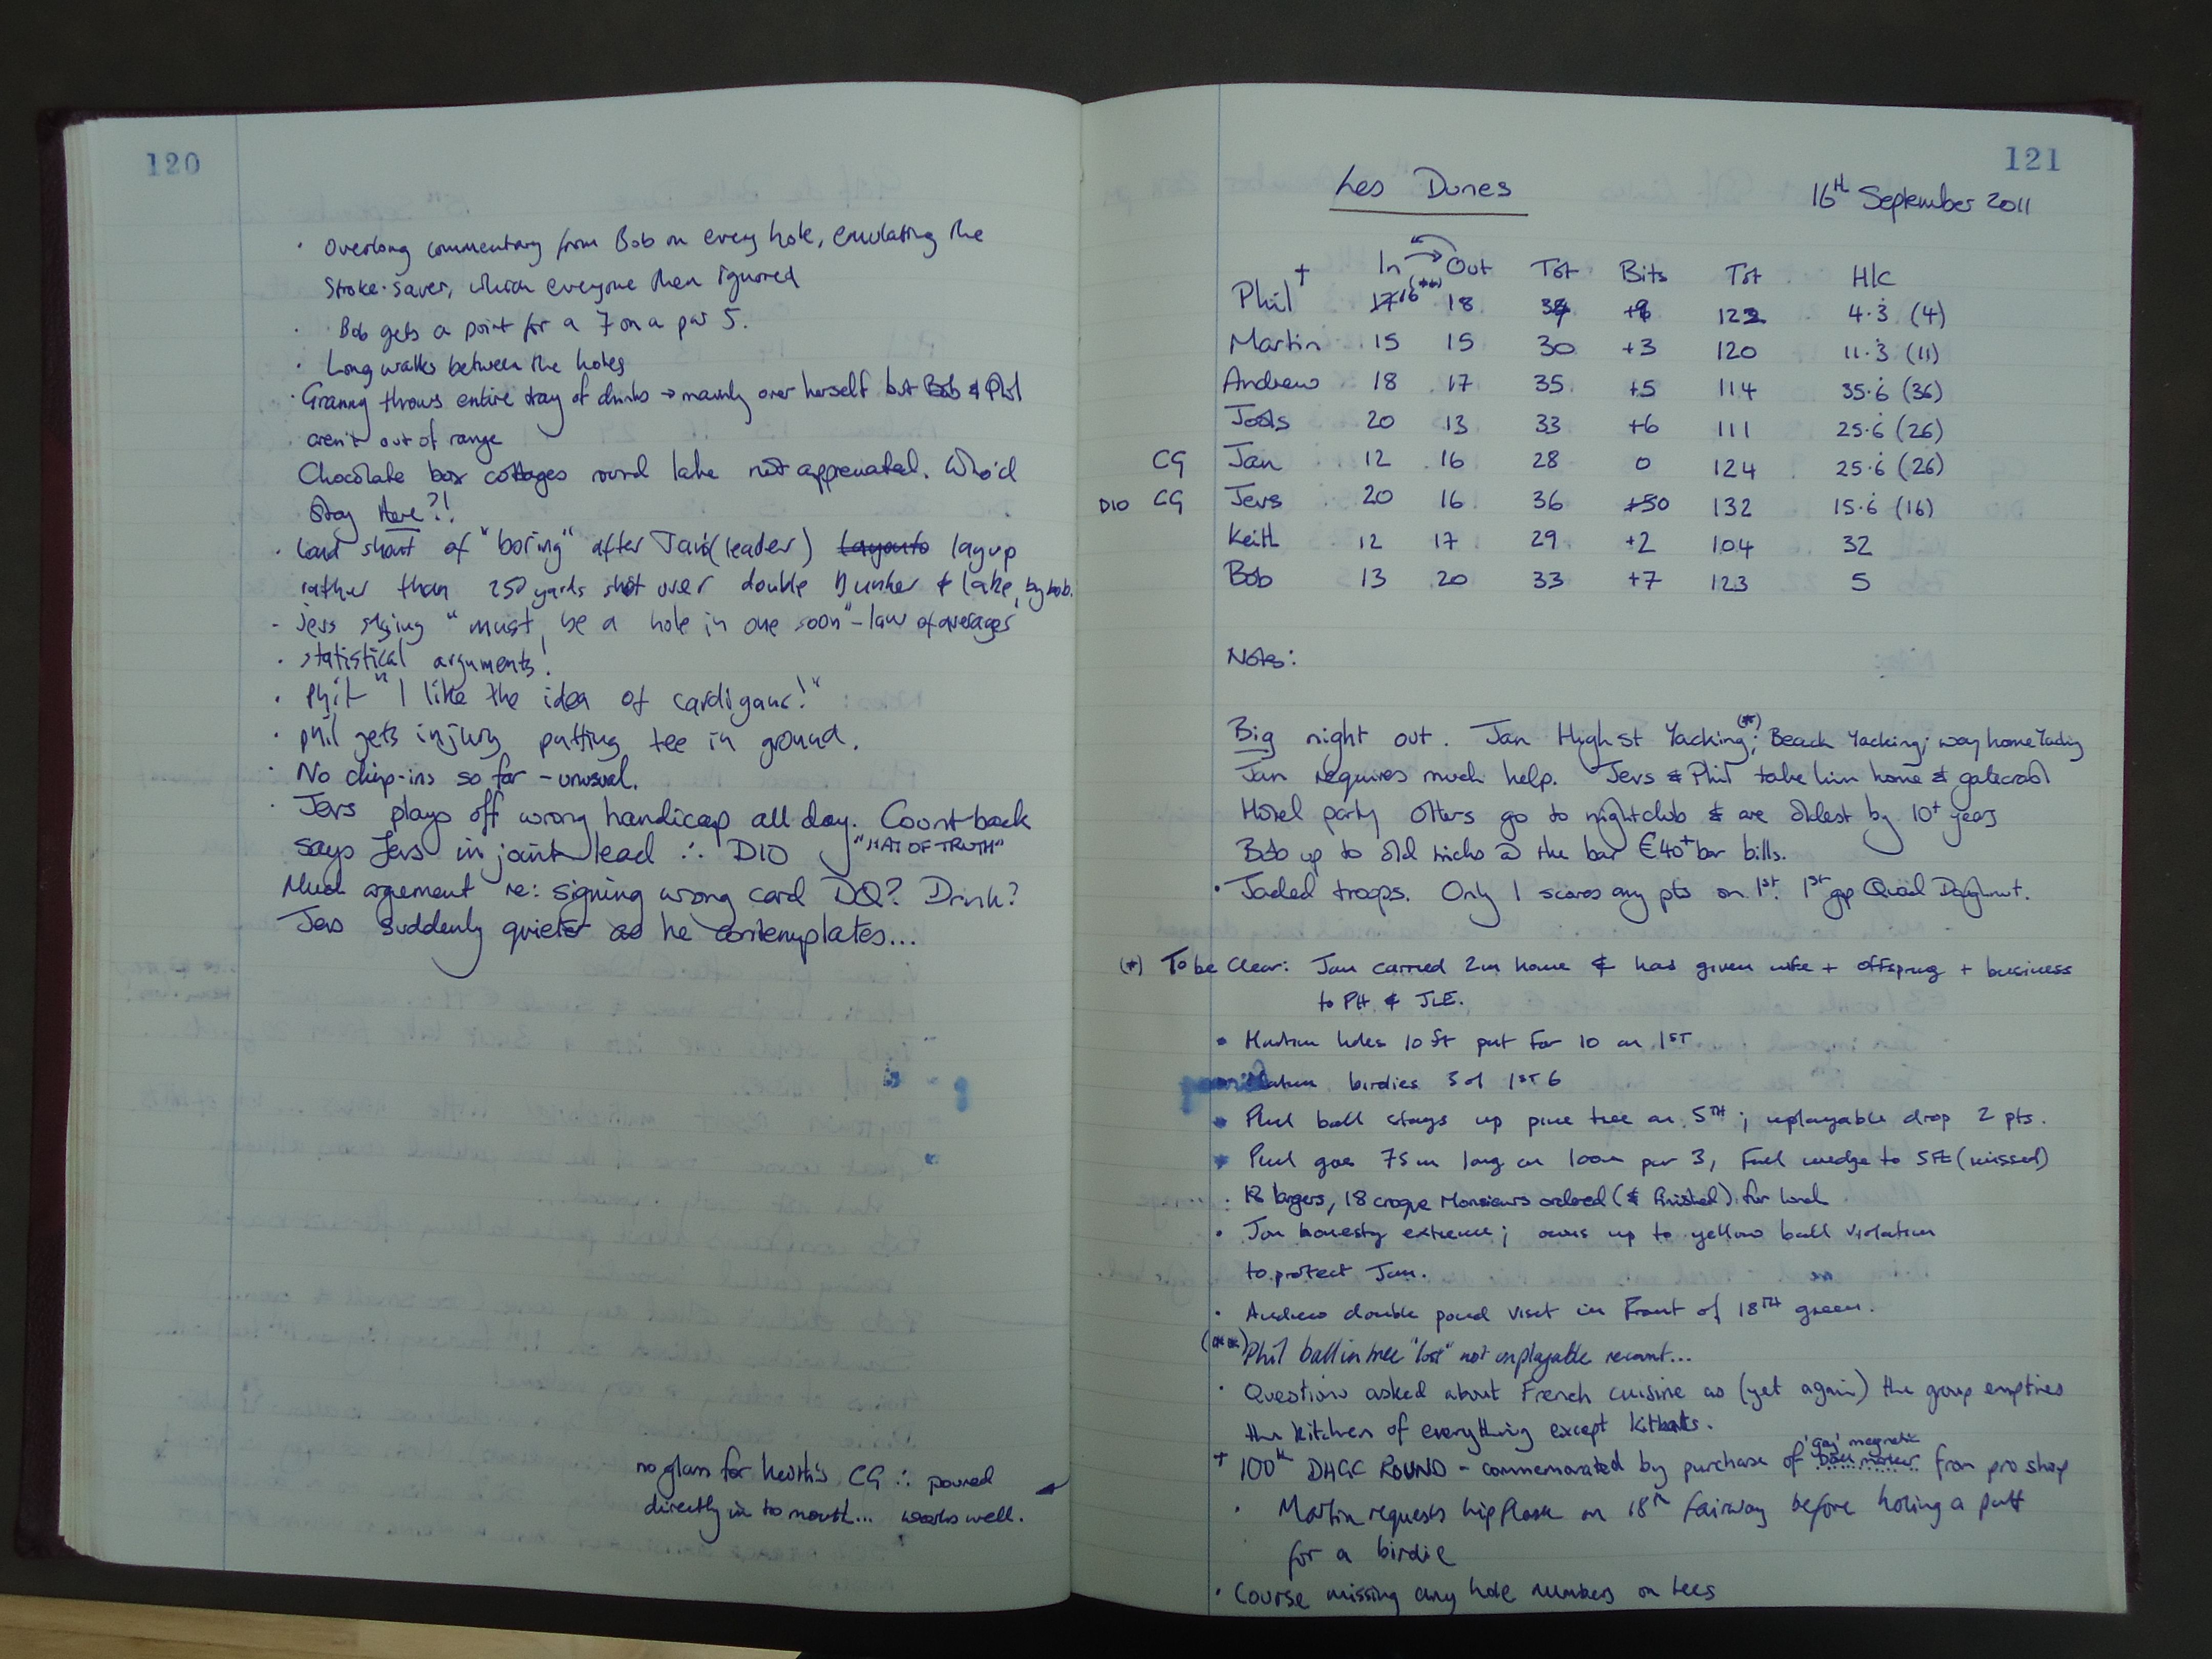 120
· Overlong commentary from Bob on every hole, emulating the
Stroke-Saver, which everyone then ignored
· Bob gets a point for a 7 on a par 5.
· Long walks between the holes
· Granny throws entire tray of drinks → mainly over herself but Bob & Phil
aren't out of range
Chocolate box cottages round lake not appreciated. Who'd
stay Here?!
· Loud shout of "boring" after Jan (leader) layup
rather than 250 yards shot over double bunker & lake, by bob.
- jevs saying "must be a hole in one soon" - law of averages
· statistical arguments!
· Phil "I like the idea of cardigans!"
· phil gets injury putting tee in ground.
· No chip-ins so far - unusual.
· Jevs plays off wrong handicap all day. Count-back
says Jevs in joint lead ∴ DIO "HAT OF TRUTH"
Much argement re: signing wrong card DQ? Drink?
Jevs suddenly quiet as he contemplates...
no glass for Keith's CG ∴ poured
directly in to mouth... works well.
121
Les Dunes
16TH September 2011
In Out Tot Bits Tot H/C
Phil† 17 16(**) 18 34 123 4.3 (4)
Martin 15 15 30 +3 120 11.3 (11)
Andrew 18 17 35 +5 114 35.6 (36)
Jools 20 13 33 +6 111 25.6 (26)
CG Jan 12 16 28 0 124 25.6 (26)
DIO CG Jevs 20 16 36 +50 132 15.6 (16)
Keith 12 17 29 +2 104 32
Bob 13 20 33 +7 123 5
Notes:
Big night out. Jan High St Yacking(*); Beach Yacking; way home Yacking
Jan requires much help. Jevs & Phil take him home & gatecrash
Hotel party Others go to nightclub & are oldest by 10+ years
Bob up to old tricks @ the bar €40+ bar bills.
· Jaded troops. Only 1 scores any pts on 1st. 1st gp Quad Doughnut.
(*) To be clear: Jan carried 2m home & has given wife + offspring + business
to PH & JLE.
· Martin holes 10 ft put for 10 on 1ST
birdies 3 of 1ST 6
· Phil ball stays up pine tree on 5TH; unplayable drop 2 pts.
· Phil goes 75m long on 100m par 3, Full wedge to 5ft (missed)
· 18 lagers, 18 croque Monsieurs ordered (& finished) for lunch
· Jon honesty extreme; owns up to yellow ball violation
to protect Jan.
· Andrew double pond visit in Front of 18TH green.
(**) Phil ball in tree "lost" not unplayable recount...
· Questions asked about French cuisine as (yet again) the group empties
the kitchen of everything except Kitkats.
† 100th DHGC ROUND - commemorated by purchase of 'gay' magnetic ball marker from pro shop
· Martin requests hipflask on 18th fairway before holing a putt
for a birdie
· Course missing any hole numbers on tees